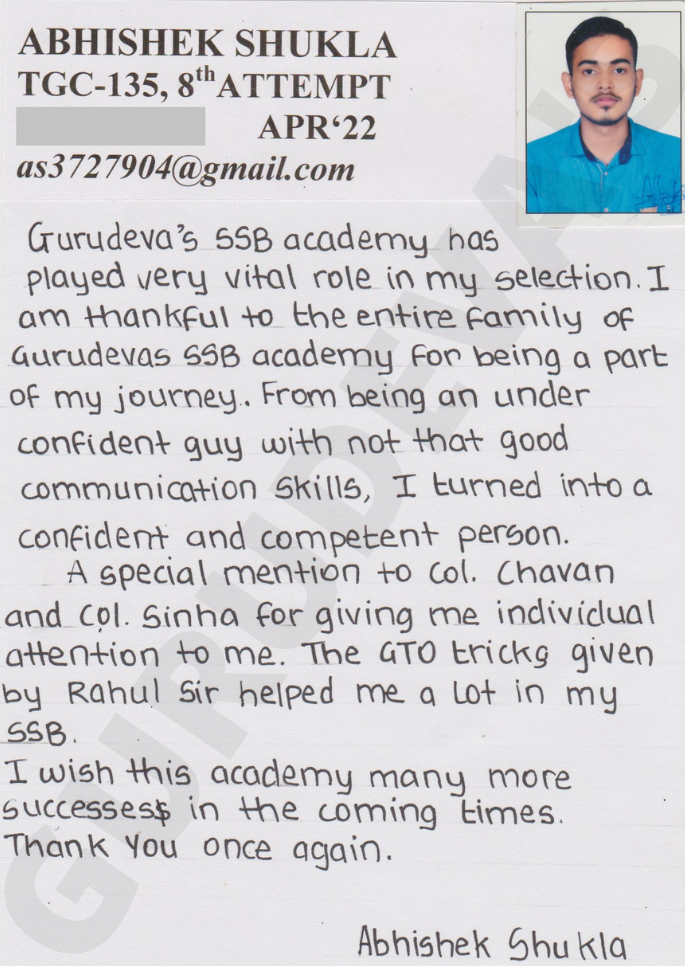 ABHISHEK SHUKLA
TGC-135, 8th ATTEMPT
APR‘22
as3727904@gmail.com
Gurudeva's SSB academy has
played very vital role in my selection. I
am thankful to the entire family of
Gurudevas SSB academy for being a part
of my journey. From being an under
confident guy with not that good
communication skills, I turned into a
confident and competent person.
A special mention to Col. Chavan
and Col. Sinha for giving me individual
attention to me. The GTO tricks given
by Rahul Sir helped me a lot in my
SSB.
I wish this academy many more
successess in the coming times.
Thank You once again.
Abhishek Shukla
GURUDEVAS